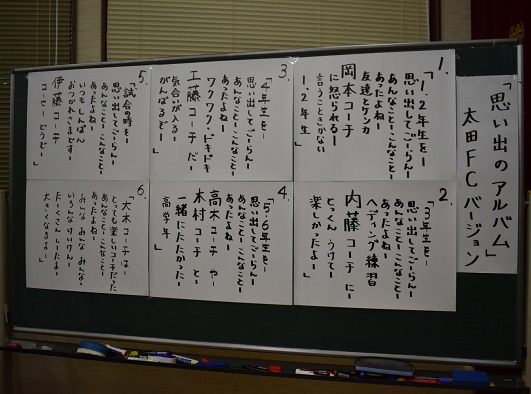 「思い出のアルバム」
太田FCバージョン
1.
「1、2年生をー
思い出してごらーん
あんなことーこんなことー
あったよねー
友達とケンカ
岡本コーチ
に怒られるー
言うこときかない
1、2年生」
2.
「3年生をー
思い出してごらーん
あんなことーこんなことー
あったよねー
ヘディング練習
内藤コーチにー
とっくんうけてー
楽しかったよー」
3.
「4年生をー
思い出してごらーん
あんなことーこんなことー
あったよねー
ワクワク・ドキドキ
工藤コーチだー
気合いが入るー
がんばるぞー」
4.
「5・6年生をー
思い出してごらーん
あんなことーこんなことー
あったよねー
高木コーチやー
木村コーチとー
一緒にたたかったー
高学年」
5.
「試合の時をー
思い出してごらーん
あんなことーこんなことー
あったよねー
いつもしんぱん
おつかれさまです
伊藤コーチ
コーヒーどうぞー」
6.
「大木コーチはー
とっても楽しいコーチだった
あんなことーこんなことー
あったよねー
みんなみんなみんなー
いろんなけいけんー
たーくさんしーたよー
大きくなるよー」